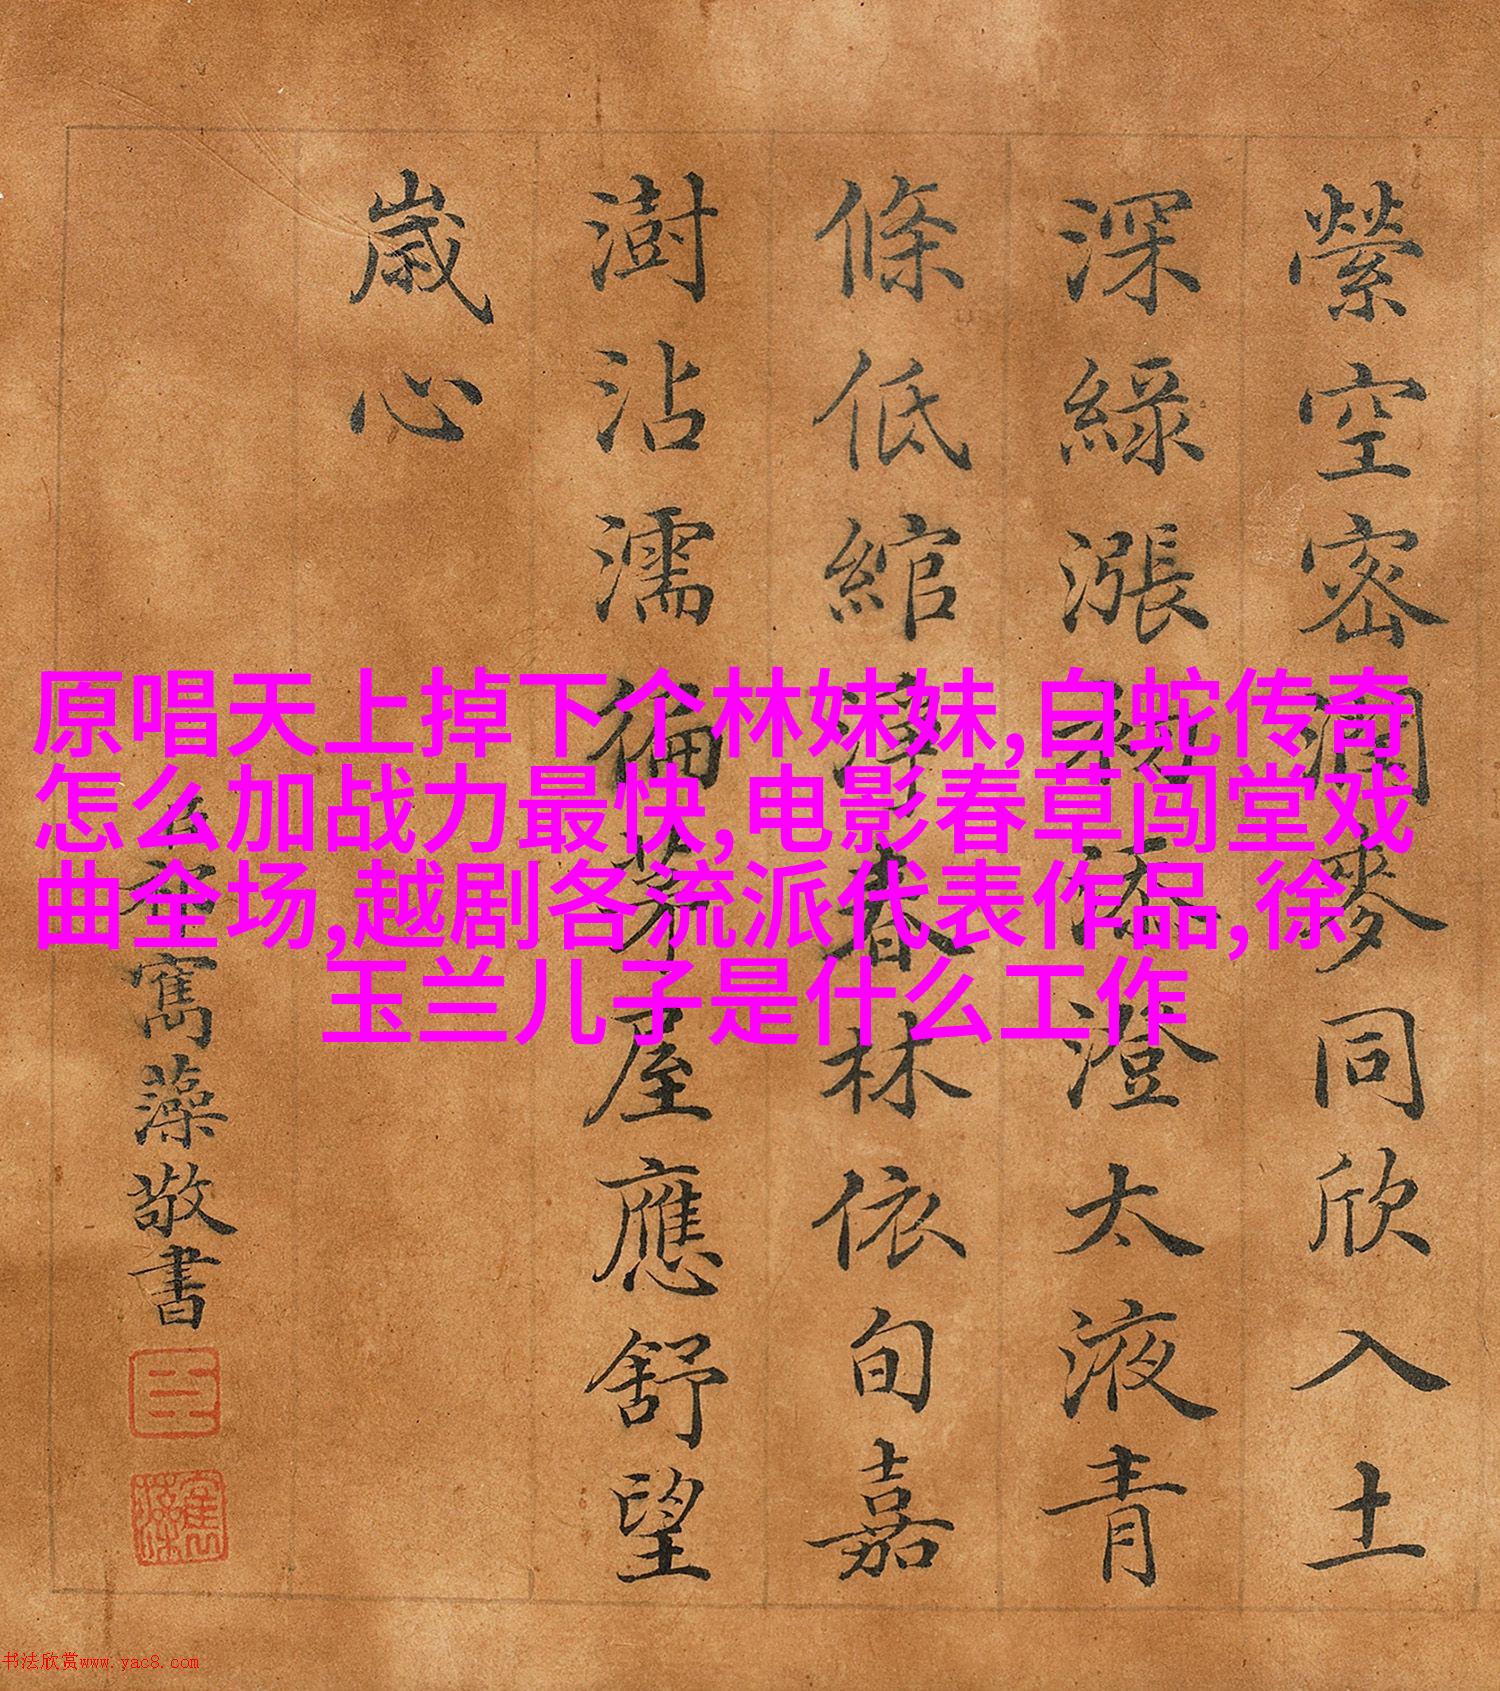 原唱天上掉下个林妹妹,白蛇传奇
怎么加战力最快,电影春草闯堂戏
曲全场,越剧各流派代表作品,徐
玉兰儿子是什么工作
縈空密潤麥同欣入土
深綠漲初添澄太液青
條低綰春林依旬嘉
澍沾濡徧屋應舒望
歲心
臣祁寯藻敬書
臣
寯藻
书法欣赏www.yac8.com